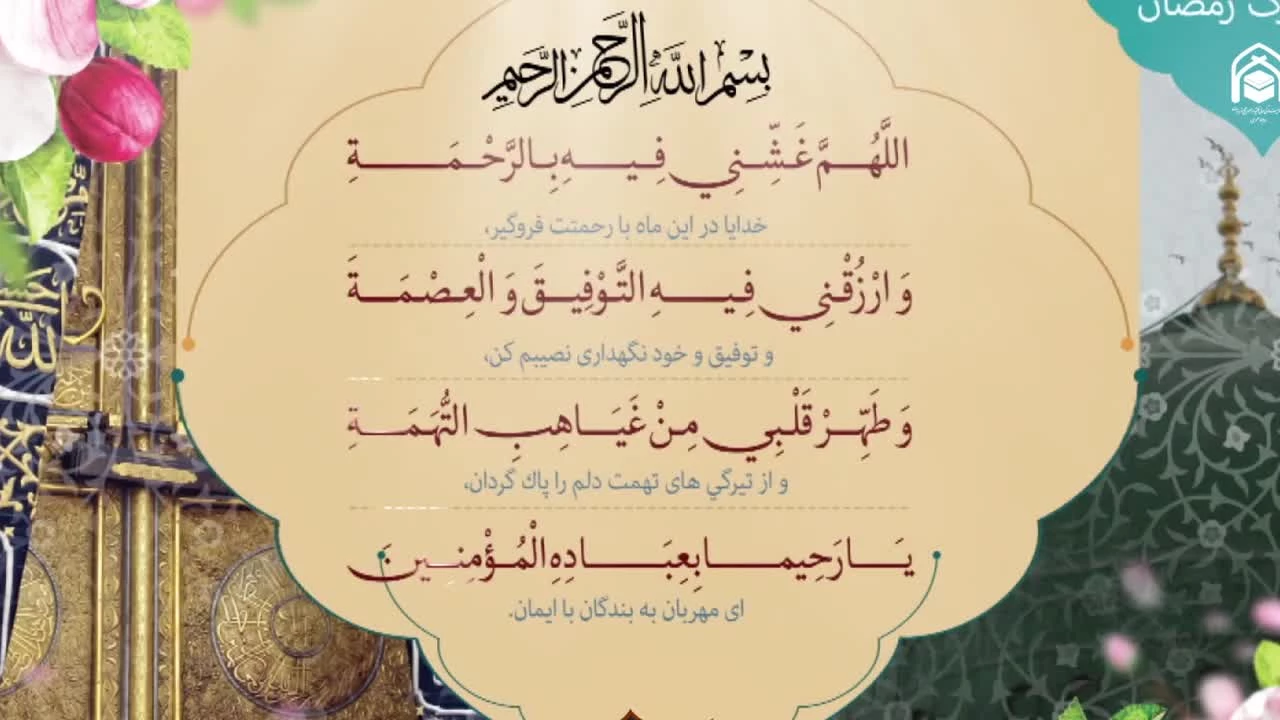 ک رمضان
بِسْمِ اللَّهِ الرَّحْمَنِ الرَّحِيمِ
اللَّهُمَّ غَشِّنِي فِيهِ بِالرَّحْمَةِ
خدایا در این ماه با رحمتت فروگیر،
وَ ارْزُقْنِي فِيهِ التَّوْفِيقَ وَ الْعِصْمَةَ
و توفیق و خود نگهداری نصیبم کن،
وَ طَهِّرْ قَلْبِي مِنْ غَيَاهِبِ التُّهَمَةِ
و از تیرگي های تهمت دلم را پاك گردان،
يَا رَحِيما بِعِبَادِهِ الْمُؤْمِنِينَ
ای مهربان به بندگان با ایمان.